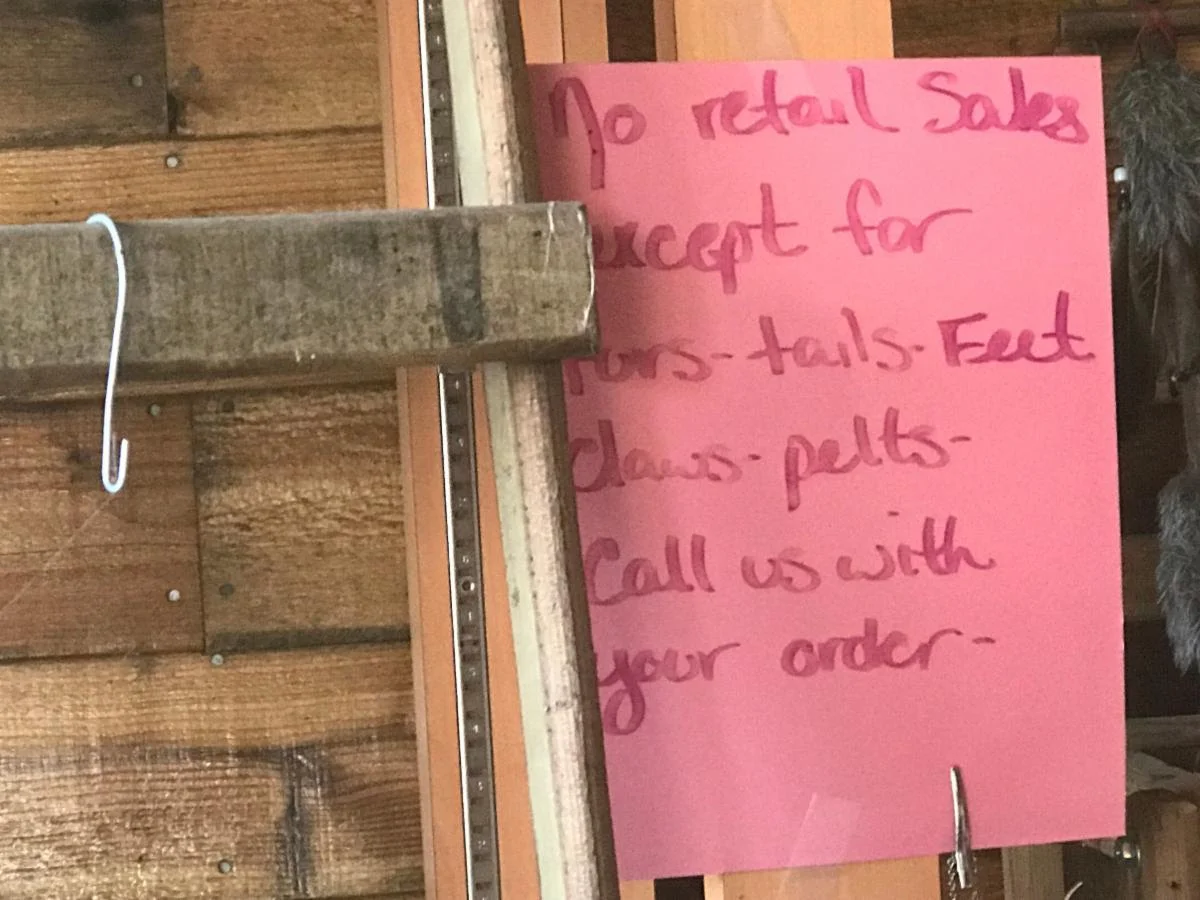 No retail Sales
except for
tails - Feet
claws - pelts -
Call us with
your order -